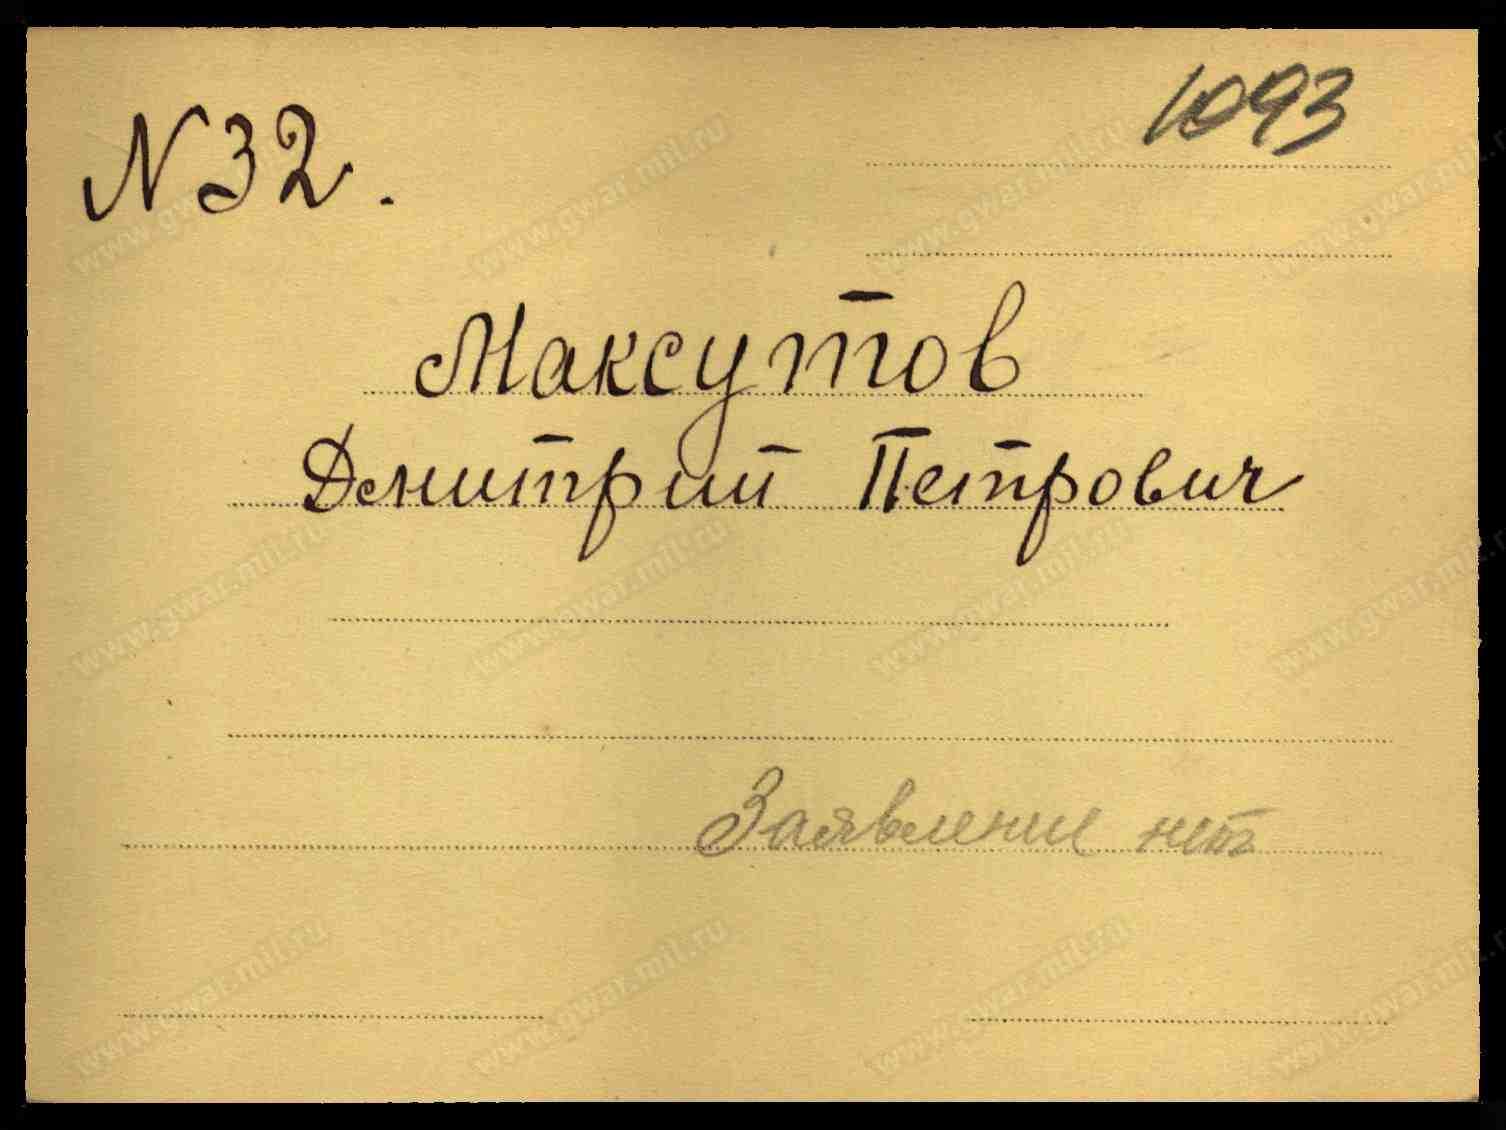 1093
N 32.
Максутов
Дмитрий Петрович
Заявление нет
www.gwar.mil.ru